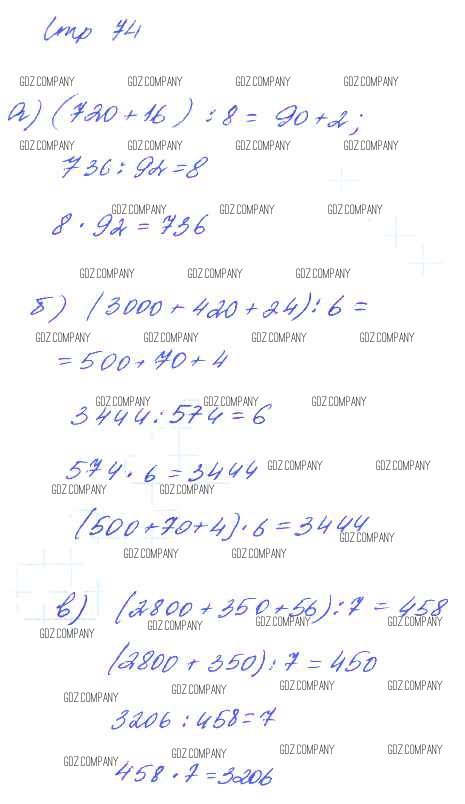 Стр 74
GDZ.COMPANY GDZ.COMPANY GDZ.COMPANY GDZ.COMPANY
а) (720 + 16) : 8 = 90 + 2;
GDZ.COMPANY GDZ.COMPANY GDZ.COMPANY GDZ.COMPANY
736 : 92 = 8
GDZ.COMPANY GDZ.COMPANY GDZ.COMPANY
8 · 92 = 736
GDZ.COMPANY GDZ.COMPANY GDZ.COMPANY
б) (3000 + 420 + 24) : 6 =
GDZ.COMPANY GDZ.COMPANY GDZ.COMPANY GDZ.COMPANY
= 500 + 70 + 4
GDZ.COMPANY GDZ.COMPANY GDZ.COMPANY
3444 : 574 = 6
574 · 6 = 3444 GDZ.COMPANY GDZ.COMPANY
GDZ.COMPANY GDZ.COMPANY
(500 + 70 + 4) · 6 = 3444
GDZ.COMPANY
GDZ.COMPANY GDZ.COMPANY
в) (2800 + 350 + 56) : 7 = 458
GDZ.COMPANY GDZ.COMPANY GDZ.COMPANY GDZ.COMPANY
(2800 + 350) : 7 = 450
GDZ.COMPANY GDZ.COMPANY GDZ.COMPANY GDZ.COMPANY
3206 : 458 = 7
GDZ.COMPANY GDZ.COMPANY GDZ.COMPANY GDZ.COMPANY
458 · 7 = 3206